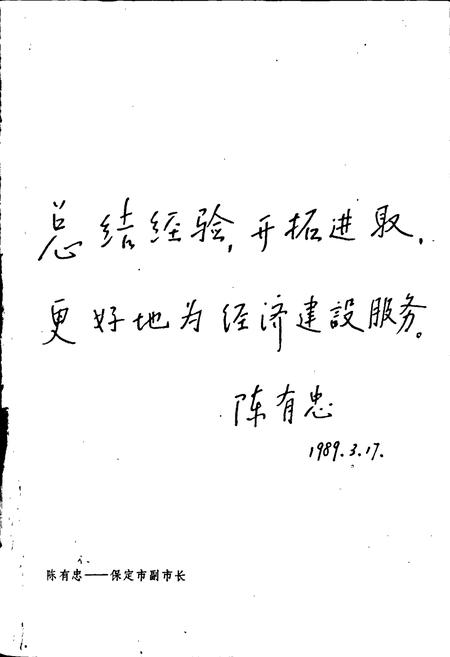 总结经验,开拓进取,
更好地为经济建設服务。
陈有忠
1989.3.17.
陈有忠——保定市副市长